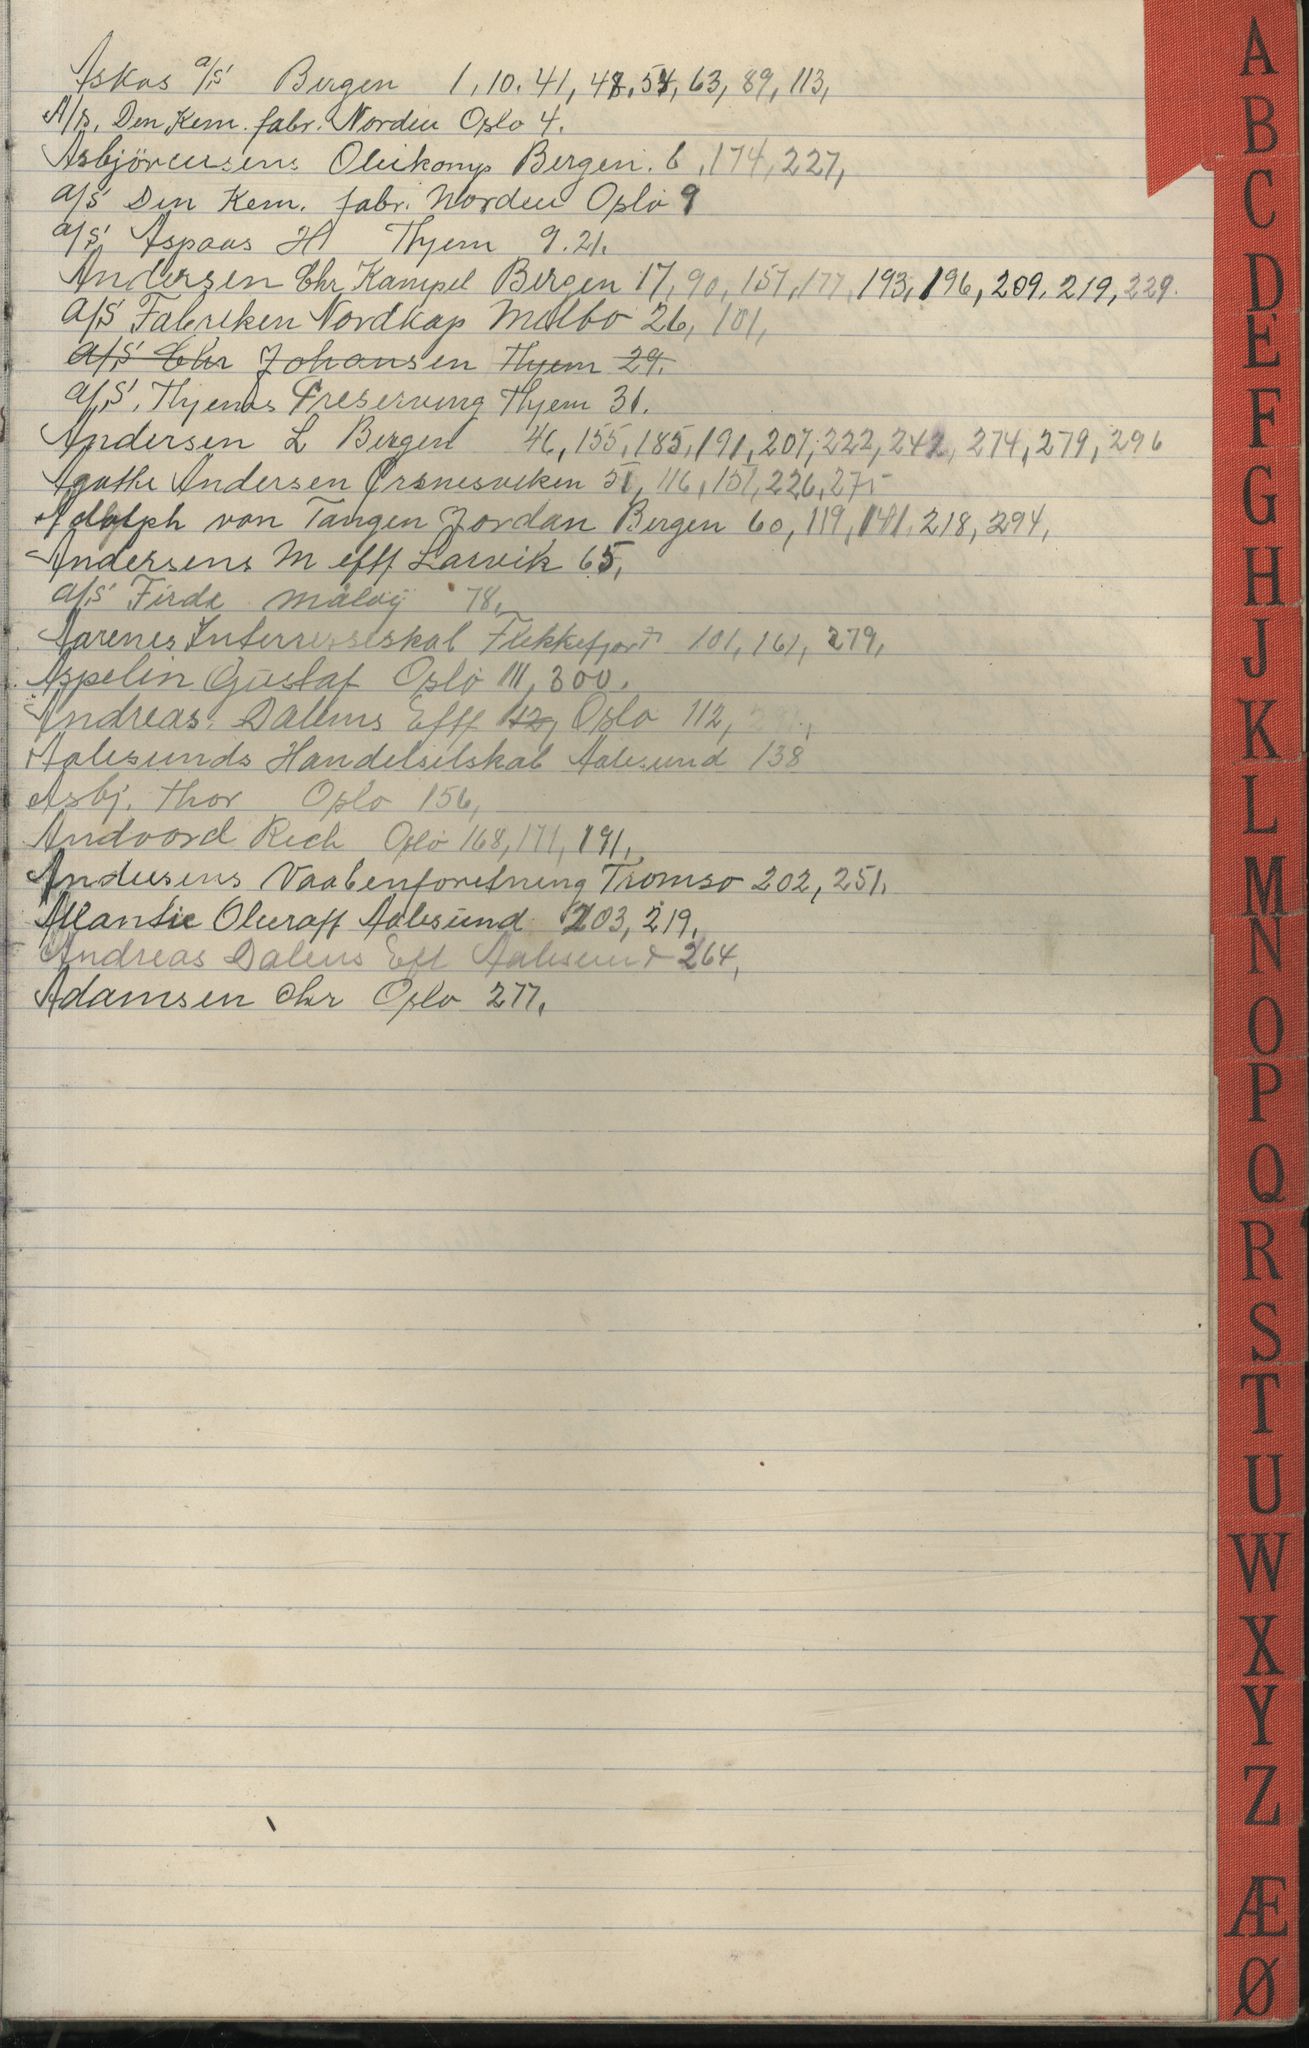 Askas a/s Bergen 1, 10, 41, 48, 54, 63, 89, 113,
A/s. Den Kem. fabr. Norden Oslo 4.
Asbjörnsens Oliekomp Bergen. 6, 174, 227,
a/s Den Kem. fabr. Norden Oslo 9
a/s Aspaas H Thjem 9. 21.
Andersen Chr Kampel Bergen 17, 90, 157, 177, 193, 196, 209, 219, 229.
a/s Fabriken Nordkap Melbo 26, 101,
a/s Chr Johansen Thjem 29.
a/s. Thjems Preserving Thjem 31.
Andersen L Bergen 46, 155, 185, 191, 207, 222, 242, 274, 279, 296
Agathe Andersen Ørsnesviken 51, 116, 151, 226, 275
Adolph von Tangen Jordan Bergen 60, 119, 141, 218, 294,
Andersens M eff Larvik 65,
a/s Firda måløy 78,
Aarenes Flekkefjord 101, 161, 279,
Appelin Gustaf Oslo 111, 300.
Andreas. Dalens Eff 112, Oslo 112,
Aalesunds Handelselskab Aalesund 138
Asbj. Thor Oslo 156,
Andvord Rich Oslo 168, 171, 191,
Andersens Vaabenforetning Tromsø 202, 251.
Atlantic Olieraff Aalesund 203, 219,
Andreas Dalens Eff Aalesund 264,
Adamsen Chr Oslo 277,
A
B
C
D
E
F
G
H
J
K
L
M
N
O
P
Q
R
S
T
U
W
X
Y
Z
Æ
Ø